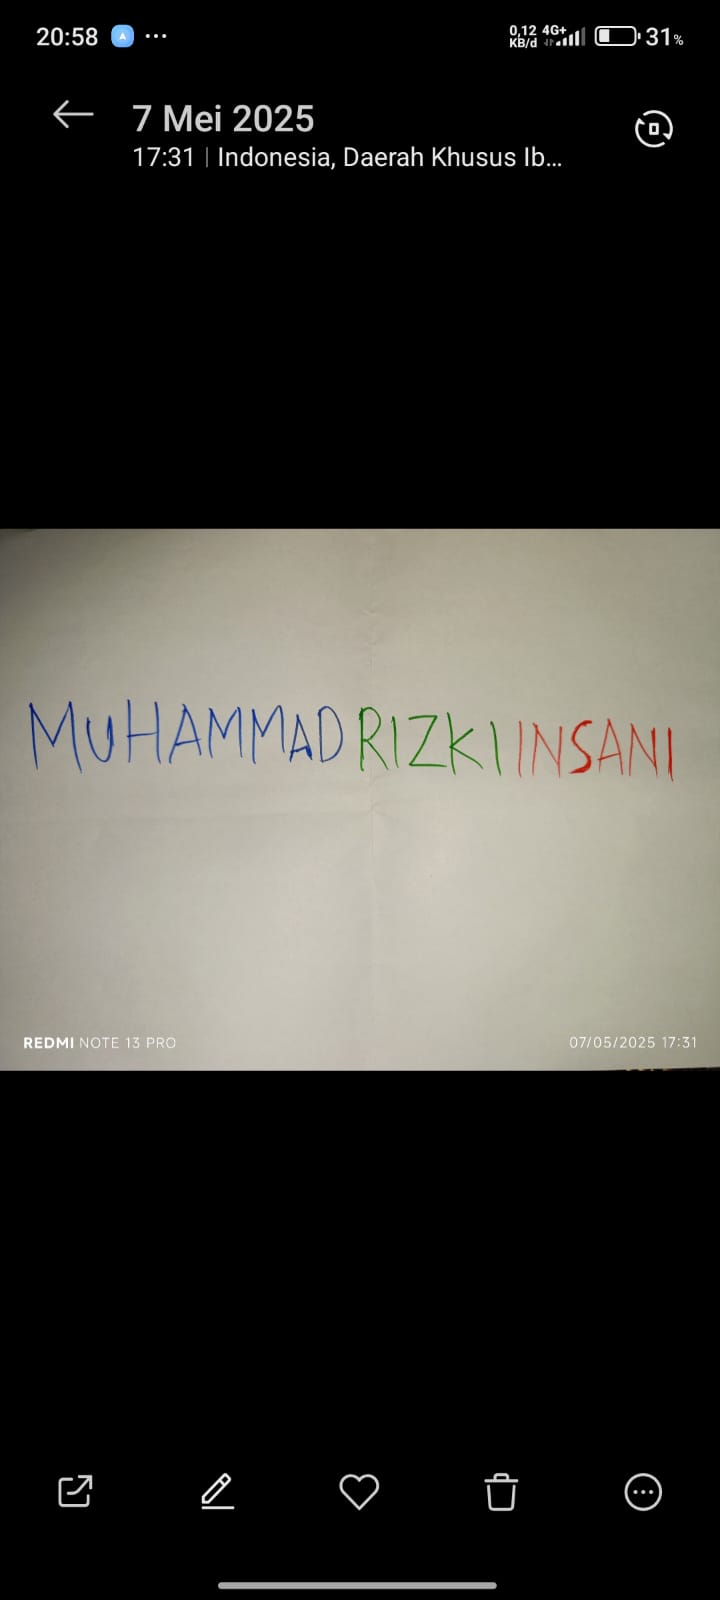 20:58 ...
0,12 KB/d 4G+ 31%
7 Mei 2025
17:31 | Indonesia, Daerah Khusus Ib...
MUHAMMAD RIZKI INSANI
REDMI NOTE 13 PRO
07/05/2025 17:31